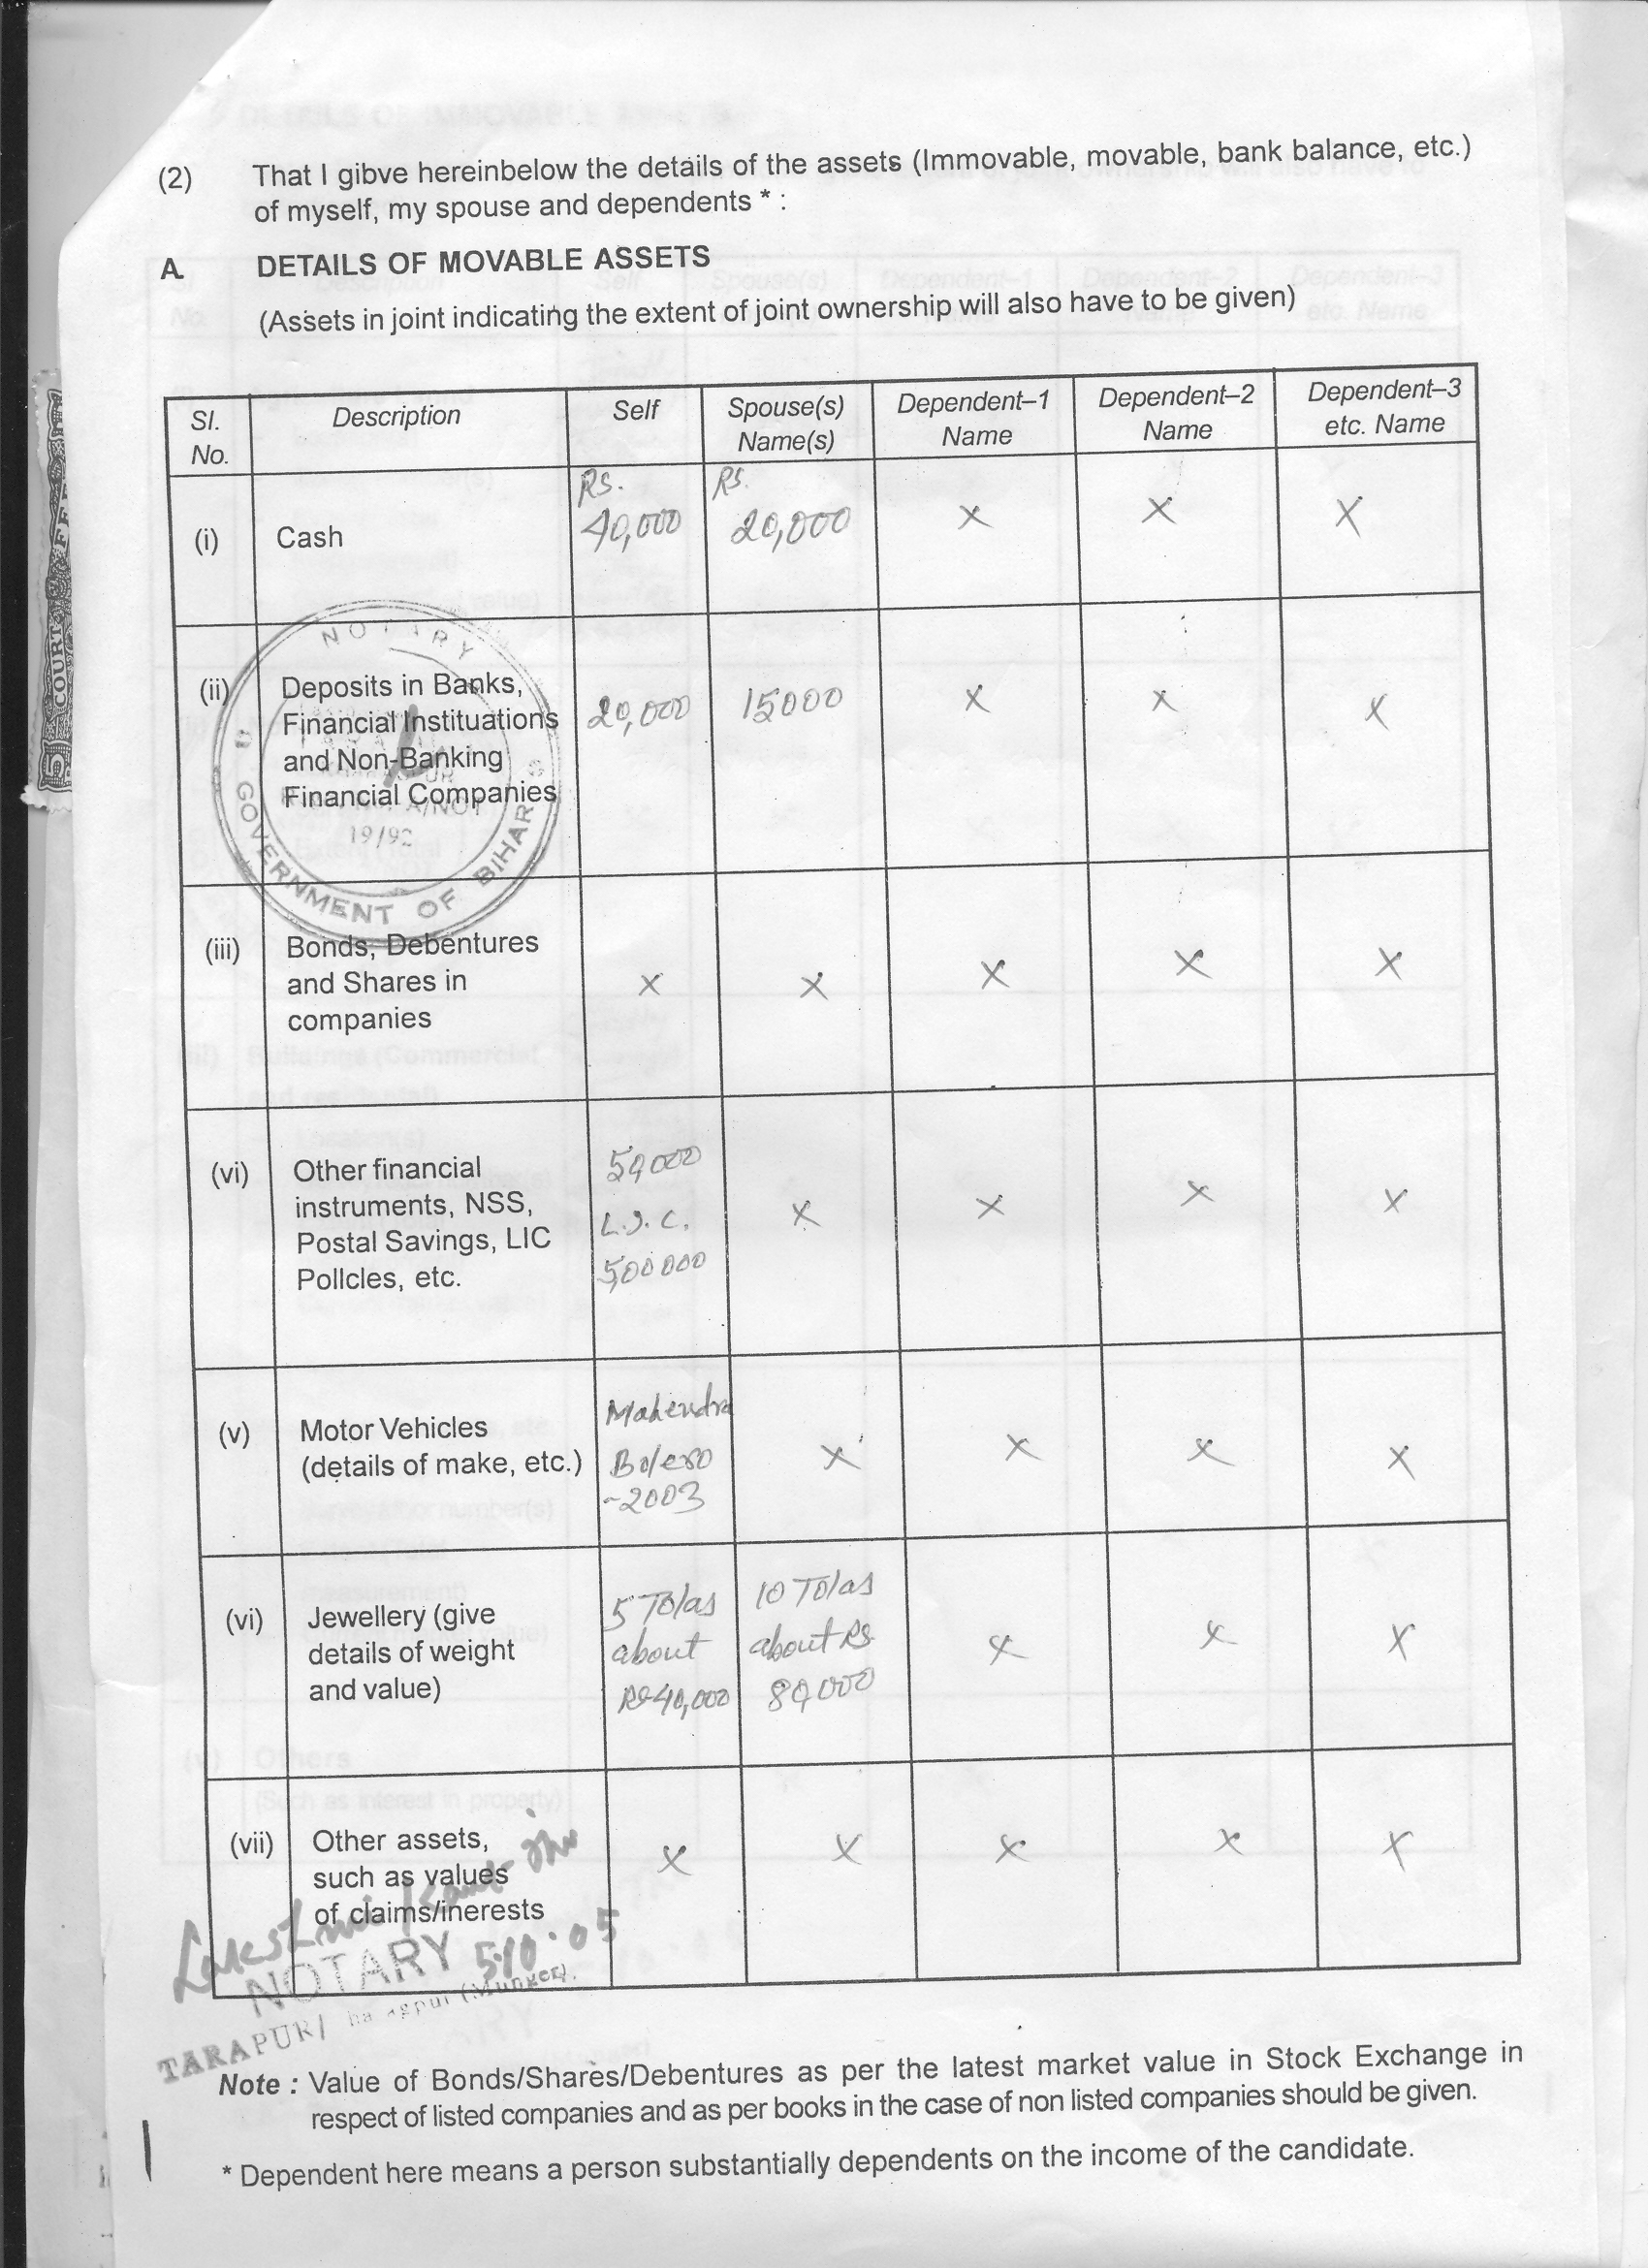 (2) That I gibve hereinbelow the details of the assets (Immovable, movable, bank balance, etc.)
of myself, my spouse and dependents * :
A. DETAILS OF MOVABLE ASSETS
(Assets in joint indicating the extent of joint ownership will also have to be given)
Sl. No. Description Self Spouse(s) Name(s) Dependent–1 Name Dependent–2 Name Dependent–3 etc. Name
(i) Cash Rs. 40,000 Rs. 20,000 x x x
(ii) Deposits in Banks, 20,000 15000 x x x
Financial Instituations
and Non-Banking
Financial Companies
NOTARY
GOVERNMENT OF BIHAR
19/92
(iii) Bonds, Debentures x x x x x
and Shares in
companies
(vi) Other financial 50,000 x x x x
instruments, NSS, L.I.C.
Postal Savings, LIC 5,00000
Pollcles, etc.
(v) Motor Vehicles Mahendra x x x x
(details of make, etc.) Bolero
-2003
(vi) Jewellery (give 5 Tolas 10 Tolas x x x
details of weight about about Rs.
and value) Rs 40,000 80,000
(vii) Other assets, x x x x x
such as values
of claims/inerests
NOTARY 5.10.05
TARAPUR/ (Munger).
Note : Value of Bonds/Shares/Debentures as per the latest market value in Stock Exchange in
respect of listed companies and as per books in the case of non listed companies should be given.
* Dependent here means a person substantially dependents on the income of the candidate.
5 COURT FEE